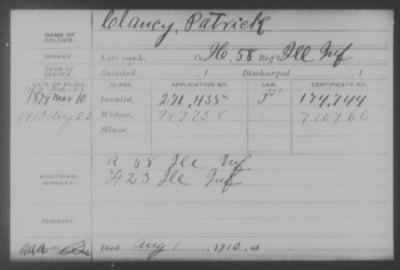 Clancy, Patrick
NAME OF SOLDIER:
SERVICE: Late rank, Co. H, 58 Reg't Ill Inf
TERM OF SERVICE: Enlisted , 1 Discharged , 1
DATE OF FILING. CLASS. APPLICATION NO. LAW. CERTIFICATE NO.
1879 Mar 10 Invalid, 271,435 F 174,744
1910 Aug 22 Widow, 947758 710,766
Minor,
A 58 Ill Inf
ADDITIONAL SERVICES: H 23 Ill Inf
REMARKS:
Died Aug 1, 1910, at